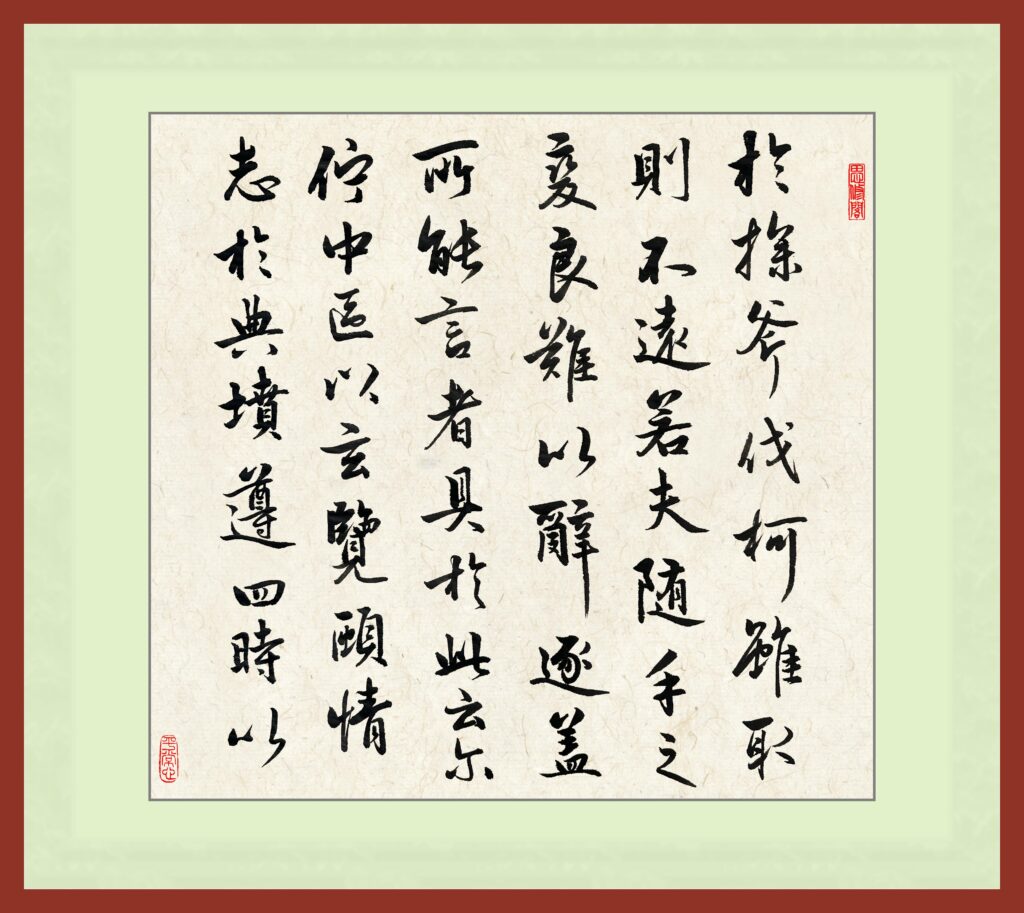 於操斧伐柯雖取
則不遠若夫随手之
變良難以辭逐盖
所能言者具於此云尔
佇中區以玄覽頤情
志於典墳遵四時以
平常心